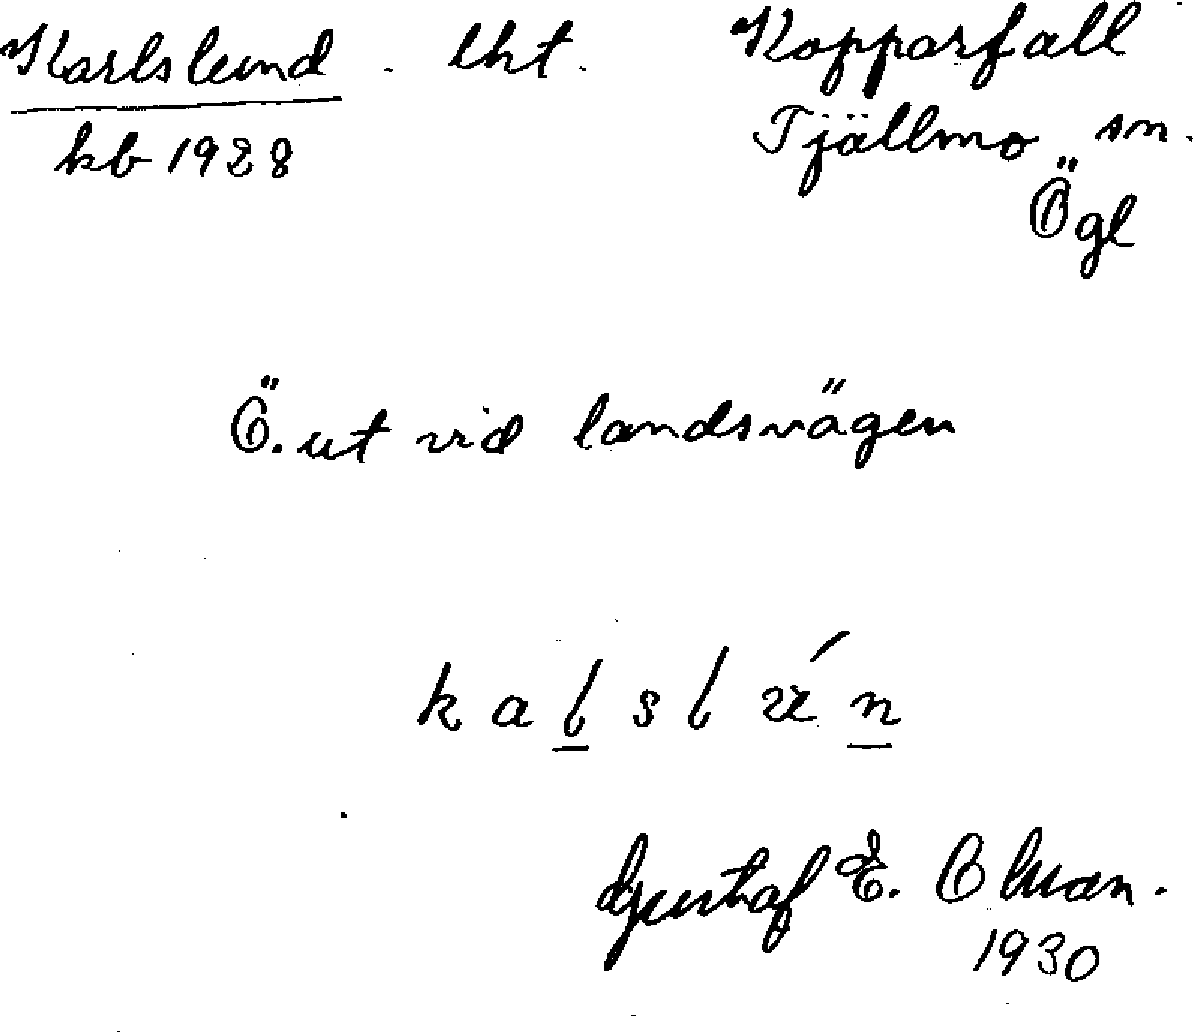 Karlslund. lht. Kopparfall
kb 1928 Tjällmo sn.
Ögl
Ö. ut vid landsvägen
k a l s l
Gustaf E.
1930